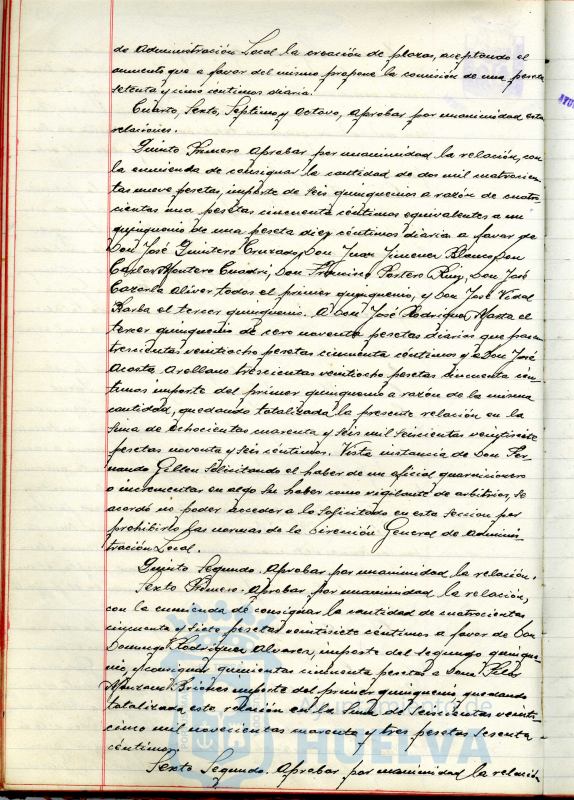 de Administración Local la creación de plazas, aceptando el
aumento que a favor del mismo propone la comisión de una peseta
setenta y cinco centimos diaria.
Cuarto, Sexto, Septimo y Octavo, Aprobar por unanimidad estas
relaciones.
Quinto Primero Aprobar por unanimidad la relación, con
la enmienda de consignar la cantidad de dos mil cuatrocien-
tas nueve pesetas, importe de seis quinquenios a razón de cuatro-
cientas una pesetas cincuenta céntimos equivalentes a un
quinquenio de una peseta diez céntimos diaria a favor de
Don José Quintero Cruzado, Don Juan Jimenez Blanco, Don
Carlos Montero Cuadri, Don Francisco Portero Ruiz, Don José
Cazorla Oliver todos el primer quinquenio, y Don José Vidal
Barba el tercer quinquenio. A Don José Rodriguez Masta el
tercer quinquenio de cero noventa pesetas diarias que hacen
trescientas veintiocho pesetas cincuenta céntimos y a Don José
Acosta Arellano trescientas veintiocho pesetas cincuenta cén-
timos importe del primer quinquenio a razón de la misma
cantidad, quedando totalizada la presente relación en la
suma de ochocientas cuarenta y seis mil seiscientas veintisiete
pesetas noventa y seis céntimos. Vista instancia de Don Fer-
nando Gillen solicitando el haber de un oficial guarnicionero
o incrementar en algo su haber como vigilante de arbitrios, se
acordó no poder acceder a lo solicitado en esta seccion por
prohibirlo las normas de la Dirección General de Adminis-
tración Local.
Quinto Segundo. Aprobar por unanimidad la relación.
Sexto Primero. Aprobar por unanimidad la relación,
con la enmienda de consignar la cantidad de cuatrocientas
cincuenta y siete pesetas veintisiete céntimos a favor de Don
Domingo Rodriguez Alvarez, importe del segundo quinque-
nio, y consignar quinientas cincuenta pesetas a Doña Pilar
Manzano Briones importe del primer quinquenio, quedando
totalizada esta relación en la suma de seiscientas veinti-
cinco mil novecientas cuarenta y tres pesetas sesenta
céntimos.
Sexto Segundo. Aprobar por unanimidad la relación
Ayuntamiento de
HUELVA